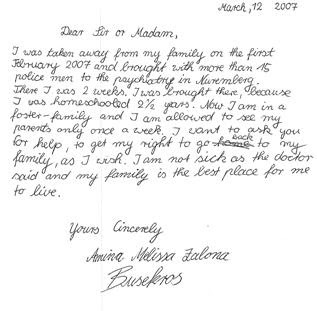 March, 12 2007
Dear Sir or Madam,
I was taken away from my family on the first
February 2007 and brought with more than 15
police men to the psychiatry in Nuremberg.
There I was 2 weeks. I was brought there, because
I was homeschooled 2½ years. Now I am in a
foster-family and I am allowed to see my
parents only once a week. I want to ask you
for help, to get my right to go home back to my
family, as I wish. I am not sick as the doctor
said and my family is the best place for me
to live.
Yours Cincerely
Amina Melissa Zalona
Busekros